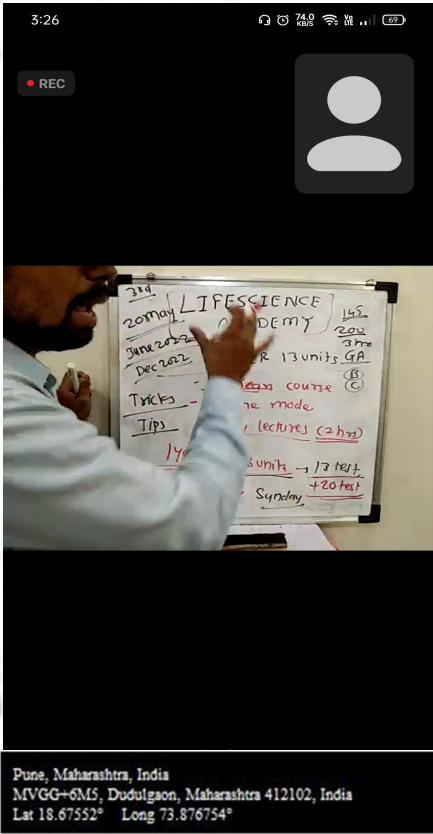 3:26
74.0
KB/S
Vo
LTE
69
REC
3rd
20 may
June 2022
Dec 2022
LIFESCIENCE
DEMY
145
200
3 hrs
R 13 units GA
B
C
course
Tricks - ne mode
Tips
lectures (2 hrs)
units → 13 test
+20 test
Sunday
Pune, Maharashtra, India
MVGG+6M5, Dudulgaon, Maharashtra 412102, India
Lat 18.67552° Long 73.876754°